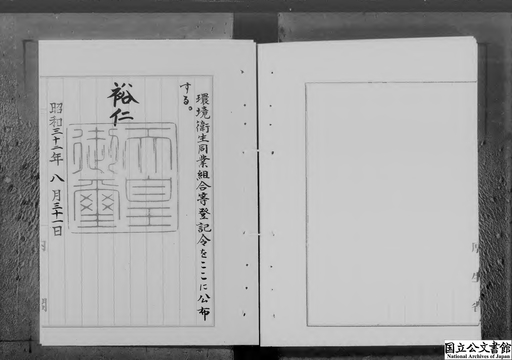 環境衛生同業組合等登記令をここに公布
する。
裕仁
天皇
御璽
昭和三十二年 八月三十一日
厚生省
国立公文書館
National Archives of Japan